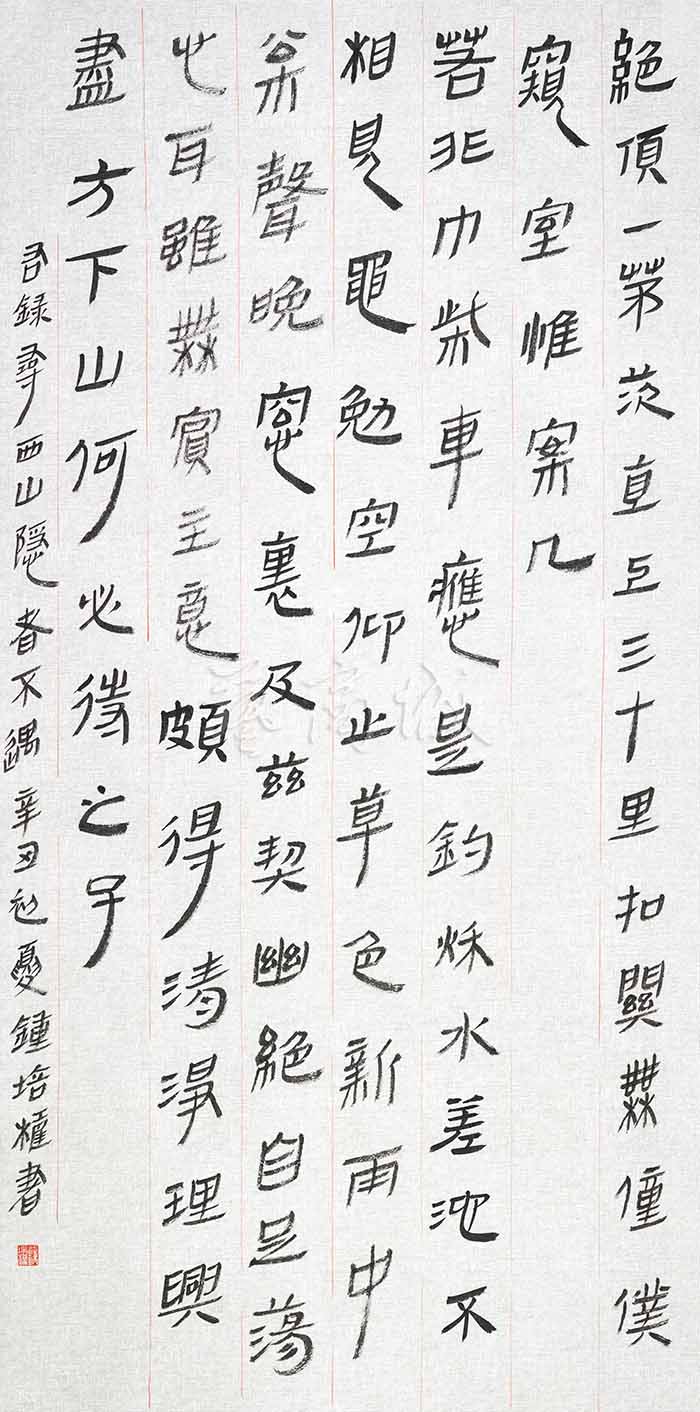 絕頂一茅茨直上三十里扣關無僮僕
窺室惟案几
若非巾柴車應是釣秋水差池不
相見黽勉空仰止草色新雨中
松聲晚窗裏及茲契幽絕自足蕩
心耳雖無賓主意頗得清淨理興
盡方下山何必待之子
右錄尋西山隱者不遇辛丑初夏鍾培權書